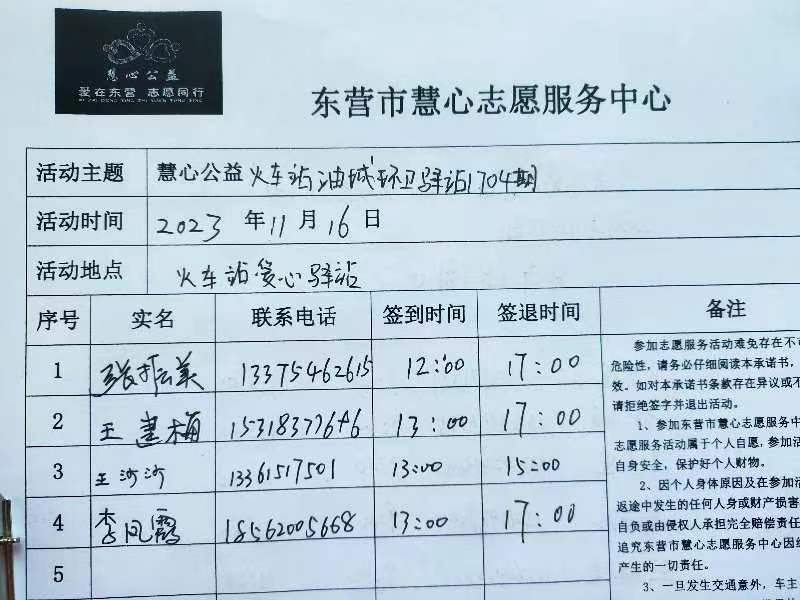 慧心公益
爱在东营 志愿同行
东营市慧心志愿服务中心
活动主题 慧心公益火车站油城环卫驿站1704期
活动时间 2023年11月16日
活动地点 火车站爱心驿站
序号 实名 联系电话 签到时间 签退时间 备注
1 张振美 13375462615 12:00 17:00
2 王建梅 13:00 17:00
3 王河河 13361517501 13:00 15:00
4 李凤霞 18562005668 13:00 17:00
5
参加志愿服务活动难免存在不可
危险性,请务必仔细阅读本承诺书,
效。如对本承诺书条款存在异议或不
请拒绝签字并退出活动。
1、参加东营市慧心志愿服务中
志愿服务活动属于个人自愿,参加活
自身安全,保护好个人财物。
2、因个人身体原因及在参加活
返途中发生的任何人身或财产损害
自负或由侵权人承担完全赔偿责任
追究东营市慧心志愿服务中心因组
产生的一切责任。
3、一旦发生交通意外,车主